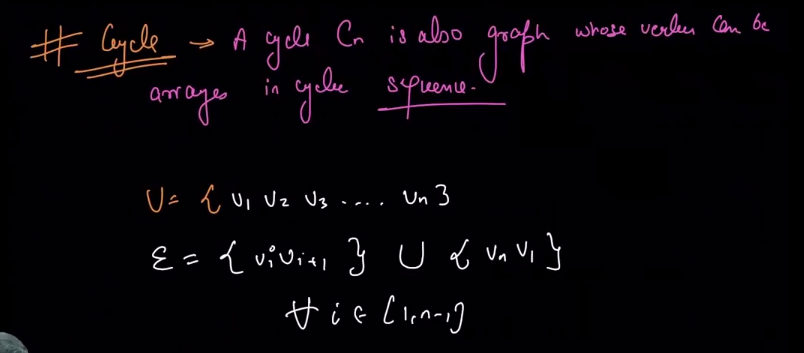 # Cycle → A cycle Cn is also graph whose vertex can be
arrayes in cyclic sequence.
V = { v1 v2 v3 .... vn }
E = { vivi+1 } ∪ { vn v1 }
∀ i ∈ [1, n-1]